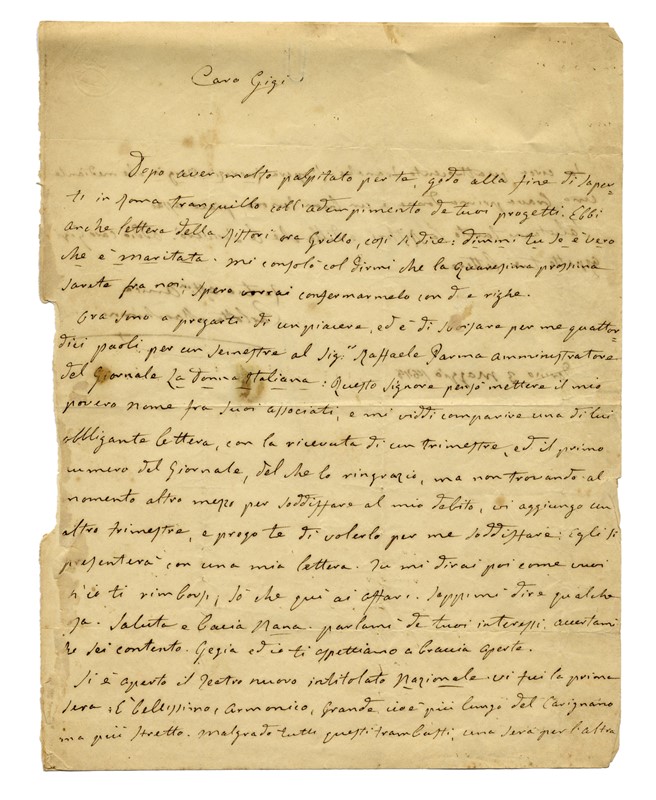 Caro Gigi
Dopo aver molto palpitato per te, godo alla fine di saper-
ti in Roma tranquillo coll'adempimento de tuoi progetti. Ebbi
anche lettera della Ristori ora Grillo, così si dice: dimmi tu se è vero
che è maritata. Mi consolò col dirmi che la quaresima prossima
sarete fra noi; spero vorrai confermarmelo con d e righe.
Ora sono a pregarti di un piacere, ed è di sborsare per me quattor-
dici paoli, per un semestre al Sig.r Raffaele Parma Amministratore
del Giornale La Donna Italiana: Questo Signore pensò mettere il mio
povero nome fra suoi associati, e mi viddi comparire una di lui
obbligante lettera, con la ricevuta di un trimestre, ed il primo
numero del Giornale, del che lo ringrazio, ma non trovando al
momento altro mezzo per soddisfare al mio debito, vi aggiungo un
altro trimestre, e prego te di volerlo per me soddisfare: Egli si
presenterà con una mia lettera. Tu mi dirai poi come vuoi
ch'io ti rimborsi, so che quì ai affari. Sappimi dire qualche
sa. Saluta e bacia Nana. parlami de tuoi interessi, accertami
se sei contento. Gegia ed io ti aspettiamo a braccia aperte.
Si è aperto il Teatro nuovo intitolato Nazionale. vi fui la prima
sera: È bellissimo, Armonico, Grande cioè più lungo del Carignano
ma più stretto. Malgrado tutti questi trambusti, una sera per l'altra